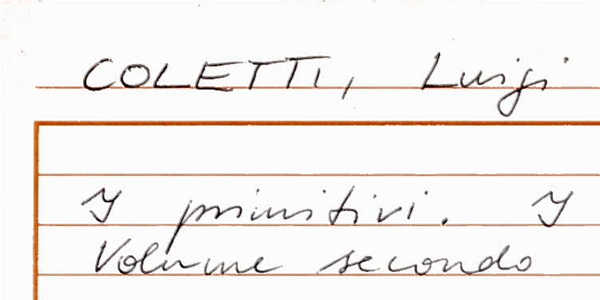 COLETTI, Luigi
I primitivi. I
Volume secondo